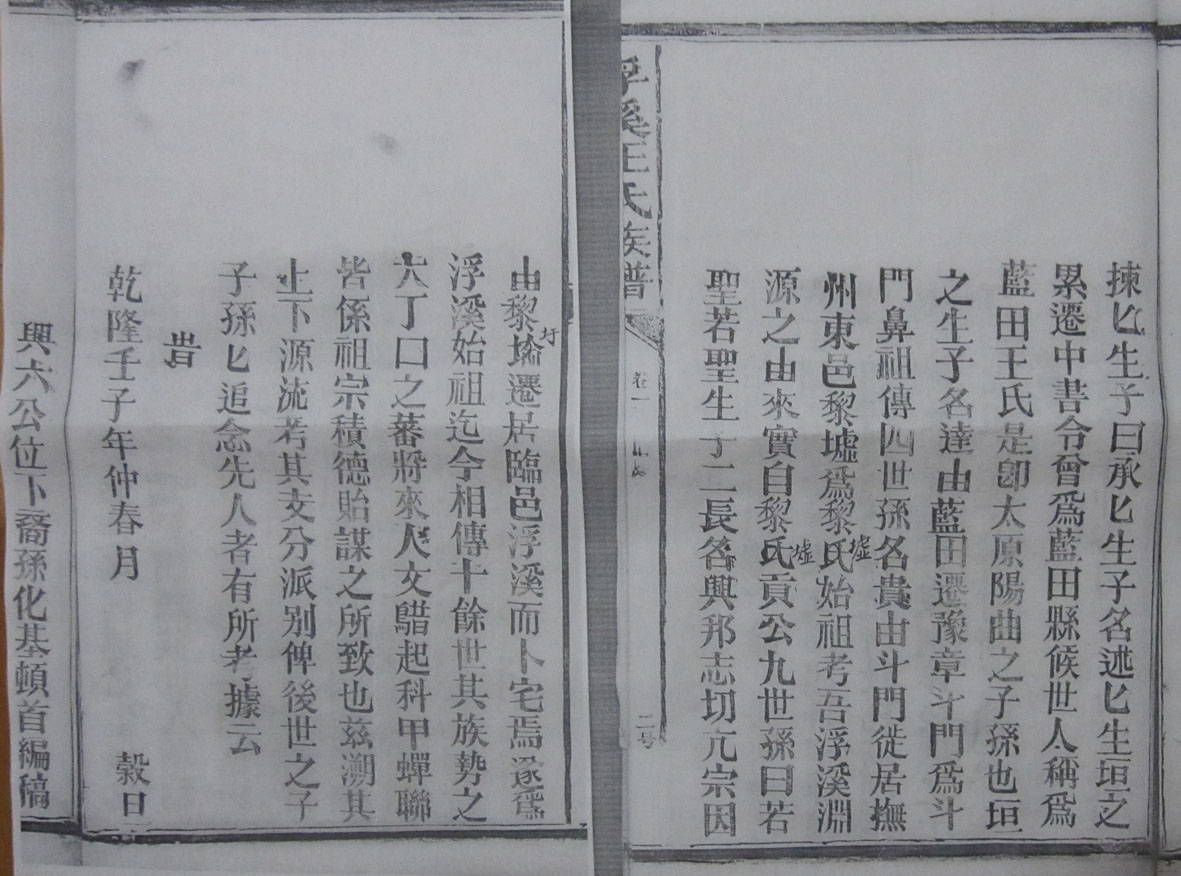 揀匕生子曰承匕生子名述匕生垣之
累遷中書令曾爲藍田縣候世人稱爲
藍田王氏是卽太原陽曲之子孫也垣
之生子名達由藍田遷豫章斗門爲斗
門鼻祖傳四世孫名貴由斗門徙居撫
州東邑黎墟爲黎氏始祖考吾浮溪淵
墟
源之由來實自黎氏貢公九世孫曰若
墟
聖若聖生子二長名興邦志切亢宗因
浮溪王氏族譜
卷一
二号
由黎堬遷居臨邑浮溪而卜宅焉遂爲
圩
浮溪始祖迄今相傳十餘世其族勢之
大丁口之蕃將來人文䠂起科甲蟬聯
皆係祖宗積德貽謀之所致也茲溯其
上下源流若其支分派別俾後世之子
子孫匕追念先人者有所考據云
旹
乾隆壬子年仲春月 穀日
興六公位下裔孫化基頓首編稿